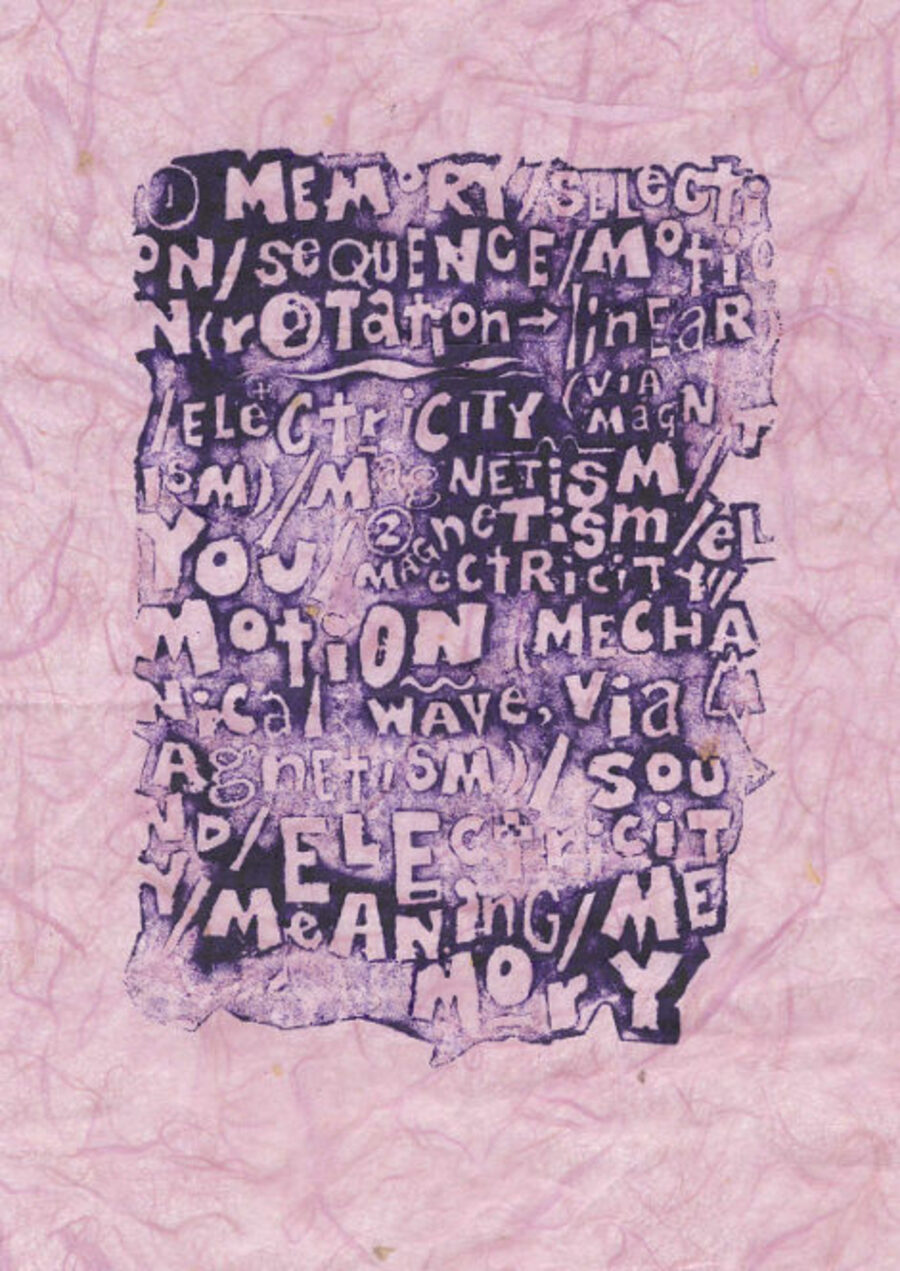 ① MEMORY/SELecti
ON/SeQUENCE/Motio
N(rOTation→linEaR)
/ELectriCITY (VIA MAGN
T
ISM)/MagNETiSM/
YOU/ ② MAGneTiSm/eL
ectRiciTY//
MotiON (MECHA
Nical WAVe, Via M
AgnEtiSM)/SOU
ND/ELEctriciT
Y/MeANinG/ME
MOrY